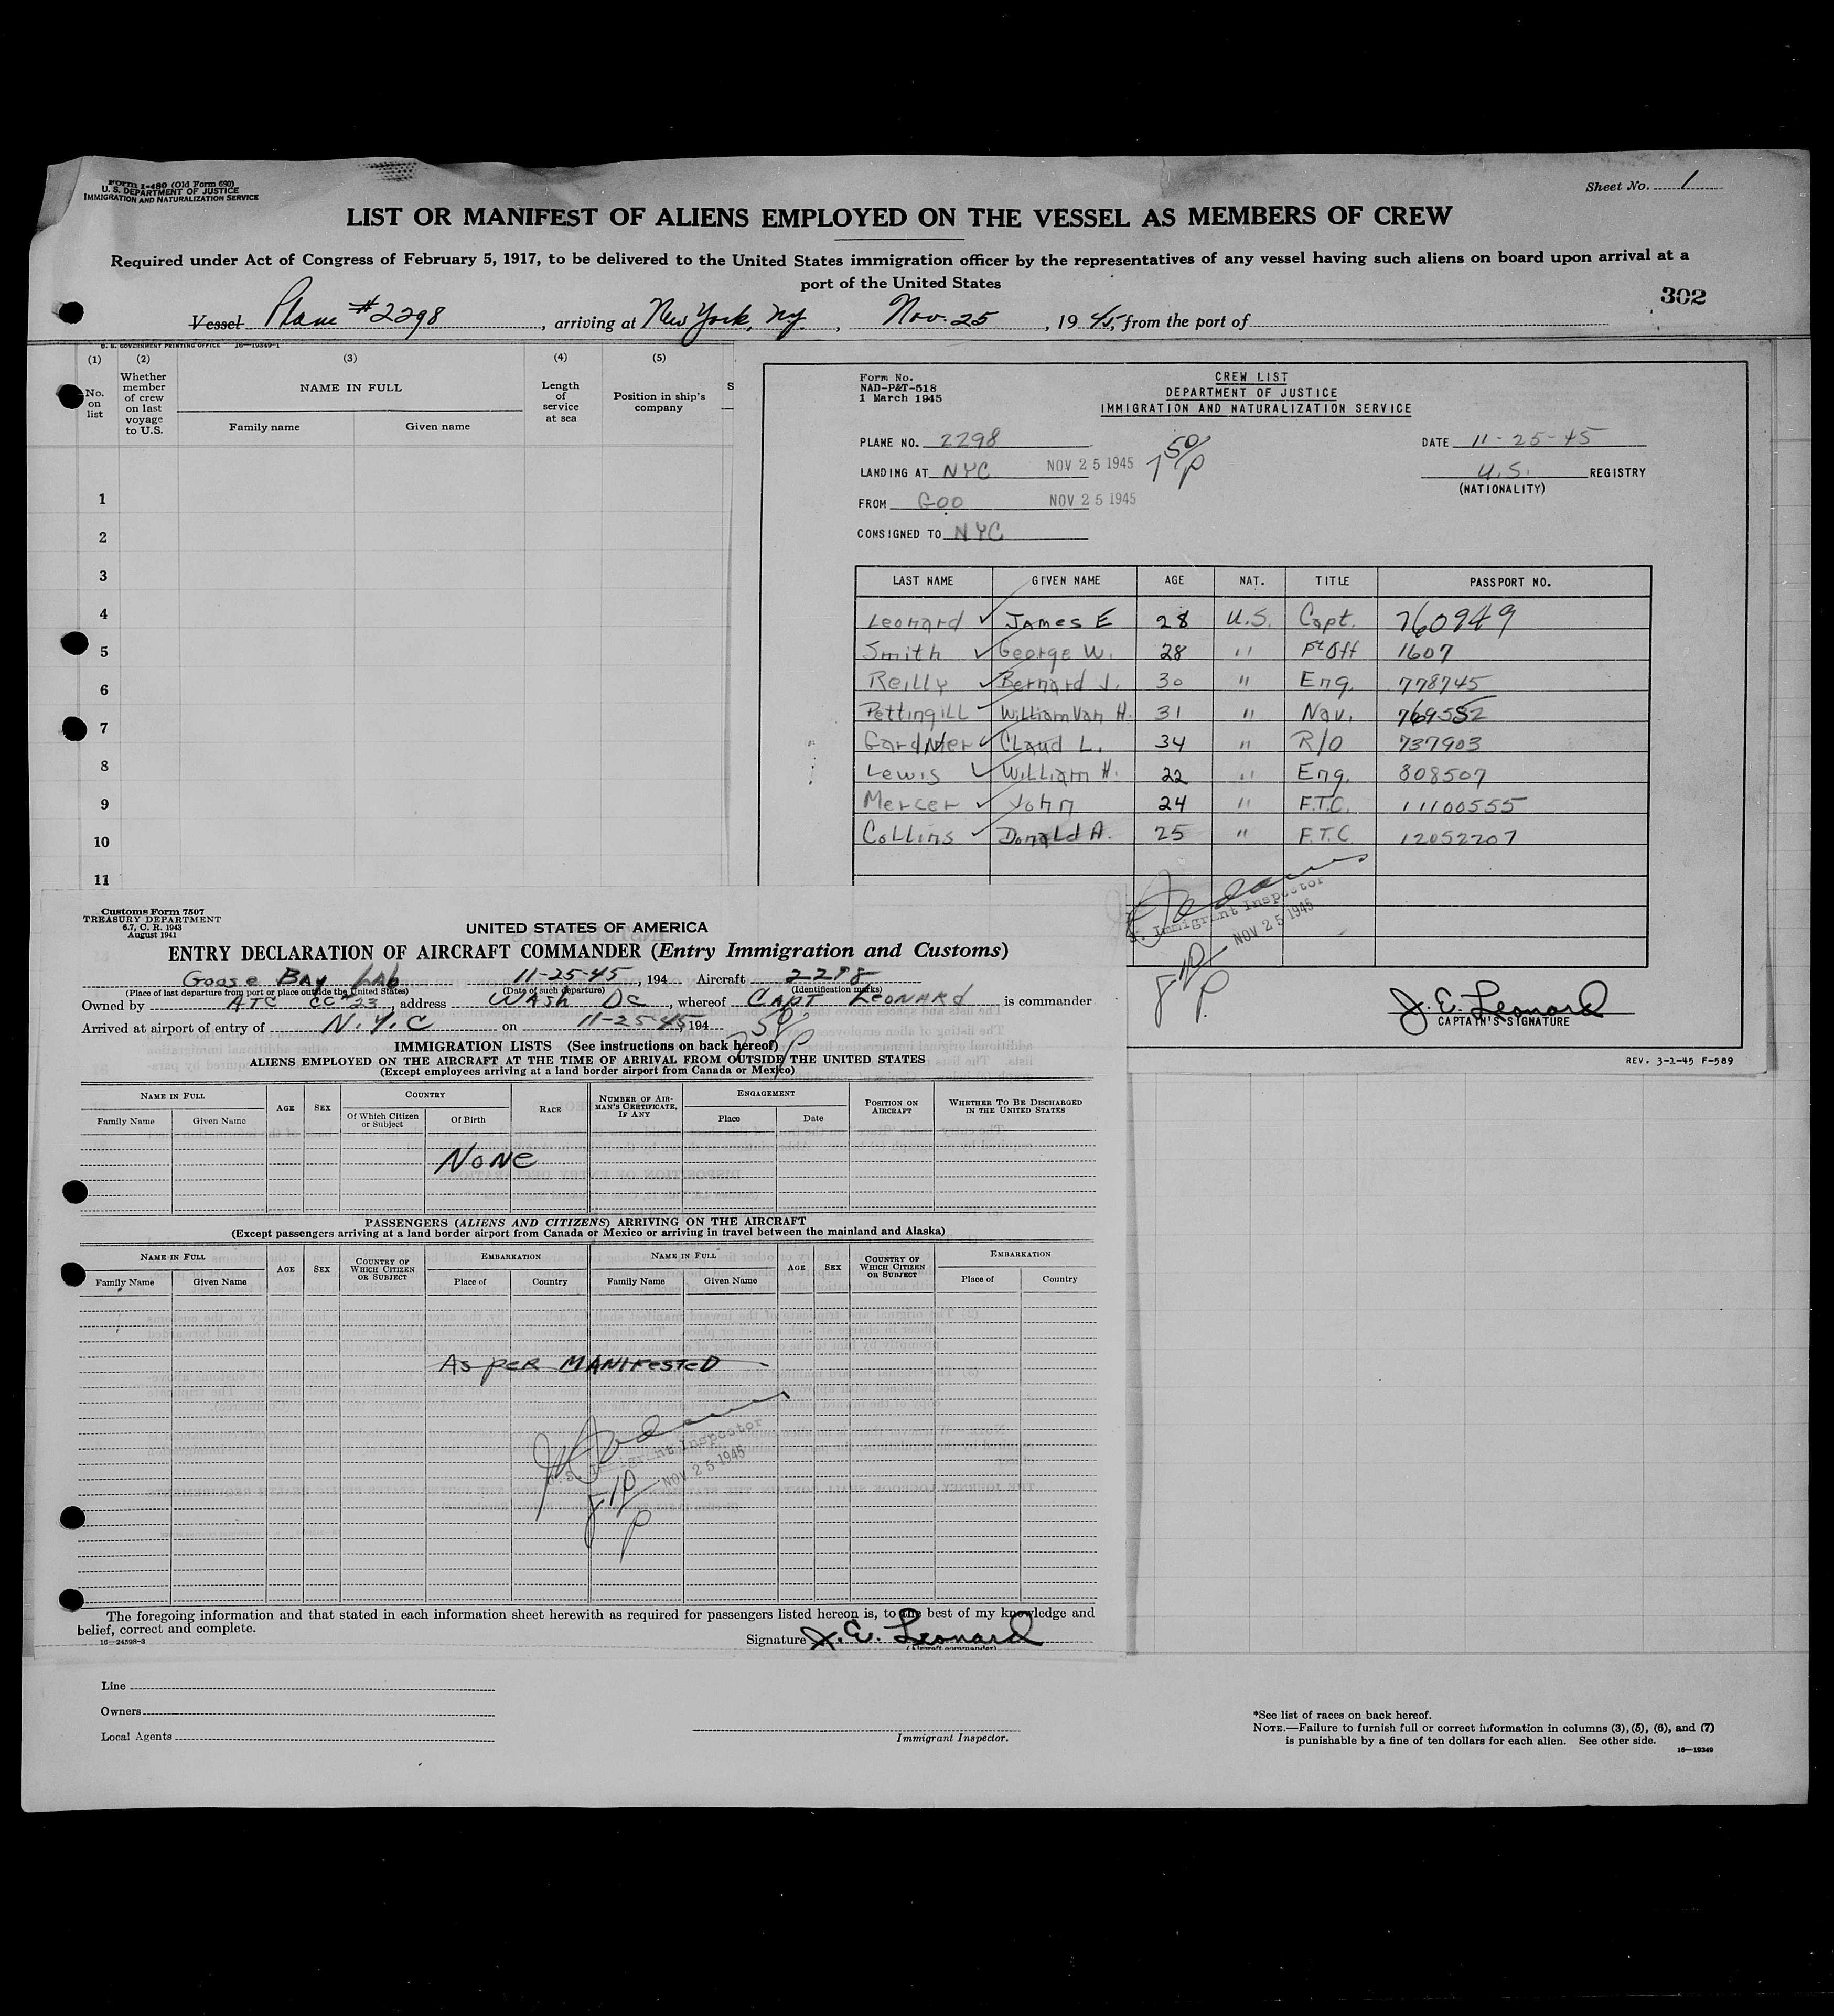 Form I-480 (Old Form 680)
U. S. DEPARTMENT OF JUSTICE
IMMIGRATION AND NATURALIZATION SERVICE
Sheet No. 1
LIST OR MANIFEST OF ALIENS EMPLOYED ON THE VESSEL AS MEMBERS OF CREW
Required under Act of Congress of February 5, 1917, to be delivered to the United States immigration officer by the representatives of any vessel having such aliens on board upon arrival at a
port of the United States
302
Vessel Plane #2298, arriving at New York, NY, Nov. 25, 1945, from the port of
U. S. GOVERNMENT PRINTING OFFICE 16—19349-1
(1) (2) (3) (4) (5)
No. on list
Whether member of crew on last voyage to U.S.
NAME IN FULL
Family name Given name
Length of service at sea
Position in ship's company
S
1
2
3
4
5
6
7
8
9
10
11
Form No.
NAD-P&T-518
1 March 1945
CREW LIST
DEPARTMENT OF JUSTICE
IMMIGRATION AND NATURALIZATION SERVICE
PLANE NO. 2298
DATE 11-25-45
LANDING AT NYC NOV 25 1945
7 50/P
U.S. REGISTRY
(NATIONALITY)
FROM GOO NOV 25 1945
CONSIGNED TO NYC
LAST NAME GIVEN NAME AGE NAT. TITLE PASSPORT NO.
Leonard James E 28 U.S. Capt. 760949
Smith George W. 28 " Ft Off 1607
Reilly Bernard J. 30 " Eng. 778745
Pettingill William Van H. 31 " Nav. 769552
Gardner Claud L. 34 " R/O 737903
Lewis William H. 22 " Eng. 808507
Mercer John 24 " F.T.C. 11100555
Collins Donald A. 25 " F.T.C 12052207
Immigrant Inspector
NOV 25 1945
J. E. Leonard
CAPTAIN'S SIGNATURE
REV. 3-1-45 F-589
Customs Form 7507
TREASURY DEPARTMENT
6.7, C. R. 1943
August 1941
UNITED STATES OF AMERICA
ENTRY DECLARATION OF AIRCRAFT COMMANDER (Entry Immigration and Customs)
Goose Bay Lab 11-25-45, 194 Aircraft 2298
(Place of last departure from port or place outside the United States) (Date of such departure) (Identification marks)
Owned by ATC CC#23, address Wash DC, whereof CAPT Leonard is commander
Arrived at airport of entry of N.Y.C on 11-25-45, 194
7 50/P
IMMIGRATION LISTS (See instructions on back hereof)
ALIENS EMPLOYED ON THE AIRCRAFT AT THE TIME OF ARRIVAL FROM OUTSIDE THE UNITED STATES
(Except employees arriving at a land border airport from Canada or Mexico)
NAME IN FULL AGE SEX COUNTRY RACE NUMBER OF AIRMAN'S CERTIFICATE, IF ANY ENGAGEMENT POSITION ON AIRCRAFT WHETHER TO BE DISCHARGED IN THE UNITED STATES
Family Name Given Name Of Which Citizen or Subject Of Birth Place Date
None
PASSENGERS (ALIENS AND CITIZENS) ARRIVING ON THE AIRCRAFT
(Except passengers arriving at a land border airport from Canada or Mexico or arriving in travel between the mainland and Alaska)
NAME IN FULL AGE SEX COUNTRY OF WHICH CITIZEN OR SUBJECT EMBARKATION NAME IN FULL AGE SEX COUNTRY OF WHICH CITIZEN OR SUBJECT EMBARKATION
Family Name Given Name Place of Country Family Name Given Name Place of Country
As per MANIFESTED
U.S. Immigrant Inspector
NOV 25 1945
The foregoing information and that stated in each information sheet herewith as required for passengers listed hereon is, to the best of my knowledge and
belief, correct and complete.
16—24598-3
Signature J. E. Leonard
(Aircraft commander)
Line
Owners
Local Agents
Immigrant Inspector.
*See list of races on back hereof.
NOTE.—Failure to furnish full or correct information in columns (3), (5), (6), and (7)
is punishable by a fine of ten dollars for each alien. See other side.
16—19349